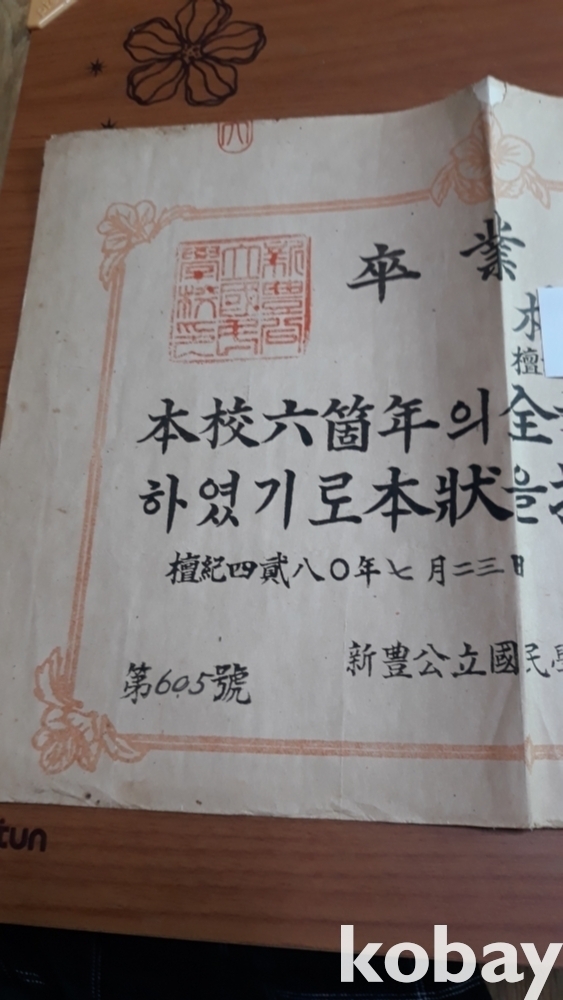 卒業
新豊公
立國民
學校印
檀
本校六箇年의全
하였기로本狀을
檀紀四貳八〇年七月二三日
新豊公立國民學
第605號
tun
kobay